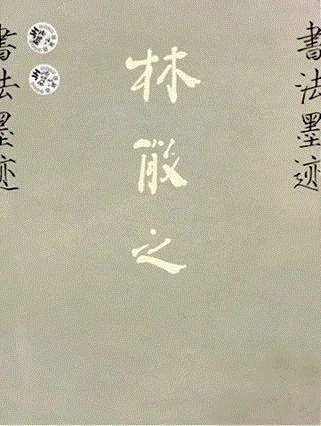 书法墨迹
林散之
书法墨迹